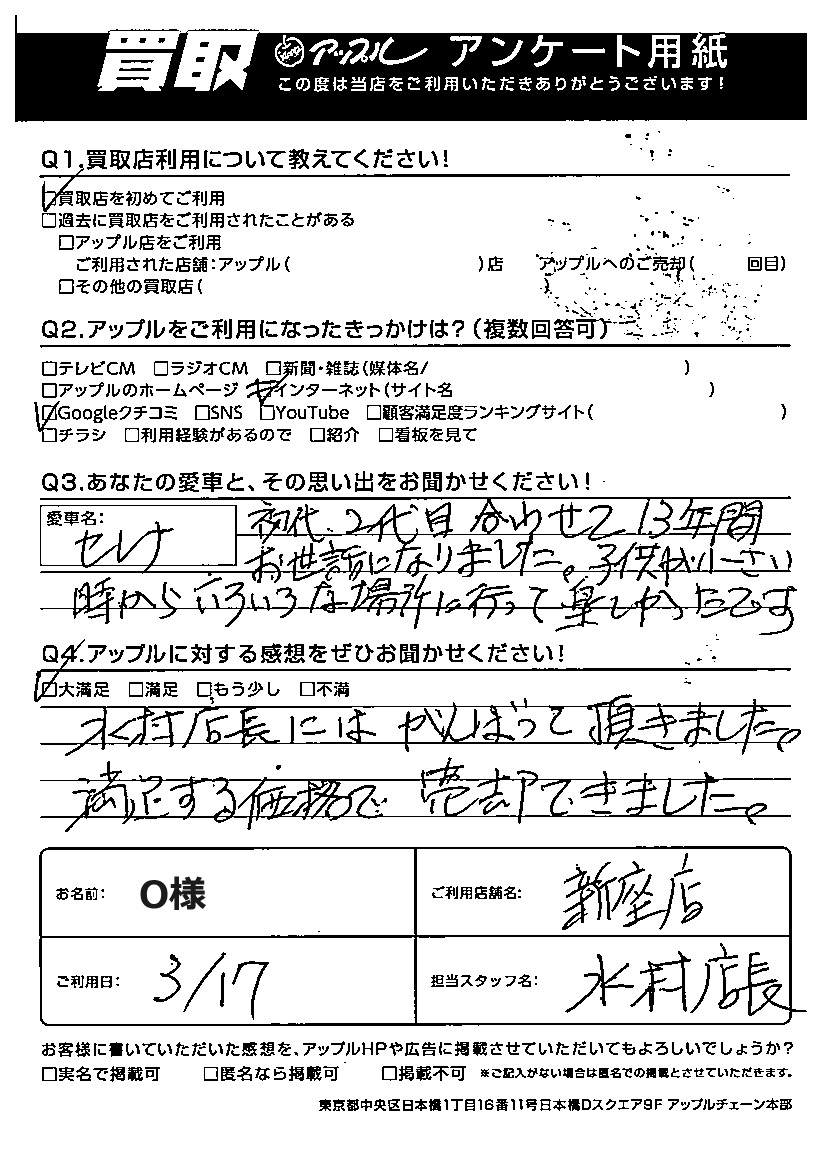 買取 アップル アンケート用紙
この度は当店をご利用いただきありがとうございます!
Q1.買取店利用について教えてください!
☑買取店を初めてご利用
□過去に買取店をご利用されたことがある
□アップル店をご利用
ご利用された店舗:アップル( )店 アップルへのご売却( 回目)
□その他の買取店( )
Q2.アップルをご利用になったきっかけは?(複数回答可)
□テレビCM □ラジオCM □新聞・雑誌(媒体名/ )
□アップルのホームページ ☑インターネット(サイト名 )
☑Googleクチコミ □SNS □YouTube □顧客満足度ランキングサイト( )
□チラシ □利用経験があるので □紹介 □看板を見て
Q3.あなたの愛車と、その思い出をお聞かせください!
愛車名: セレナ
初代、2代目合わせて13年間
お世話になりました。子供が小さい
時からいろいろな場所に行って楽しかったです
Q4.アップルに対する感想をぜひお聞かせください!
☑大満足 □満足 □もう少し □不満
水村店長にはがんばって頂きました。
満足する価格で 売却できました。
お名前: O様 ご利用店舗名: 新座店
ご利用日: 3/17 担当スタッフ名: 水村店長
お客様に書いていただいた感想を、アップルHPや広告に掲載させていただいてもよろしいでしょうか?
□実名で掲載可 □匿名なら掲載可 □掲載不可 ※ご記入がない場合は匿名での掲載とさせていただきます。
東京都中央区日本橋1丁目16番11号日本橋Dスクエア9F アップルチェーン本部